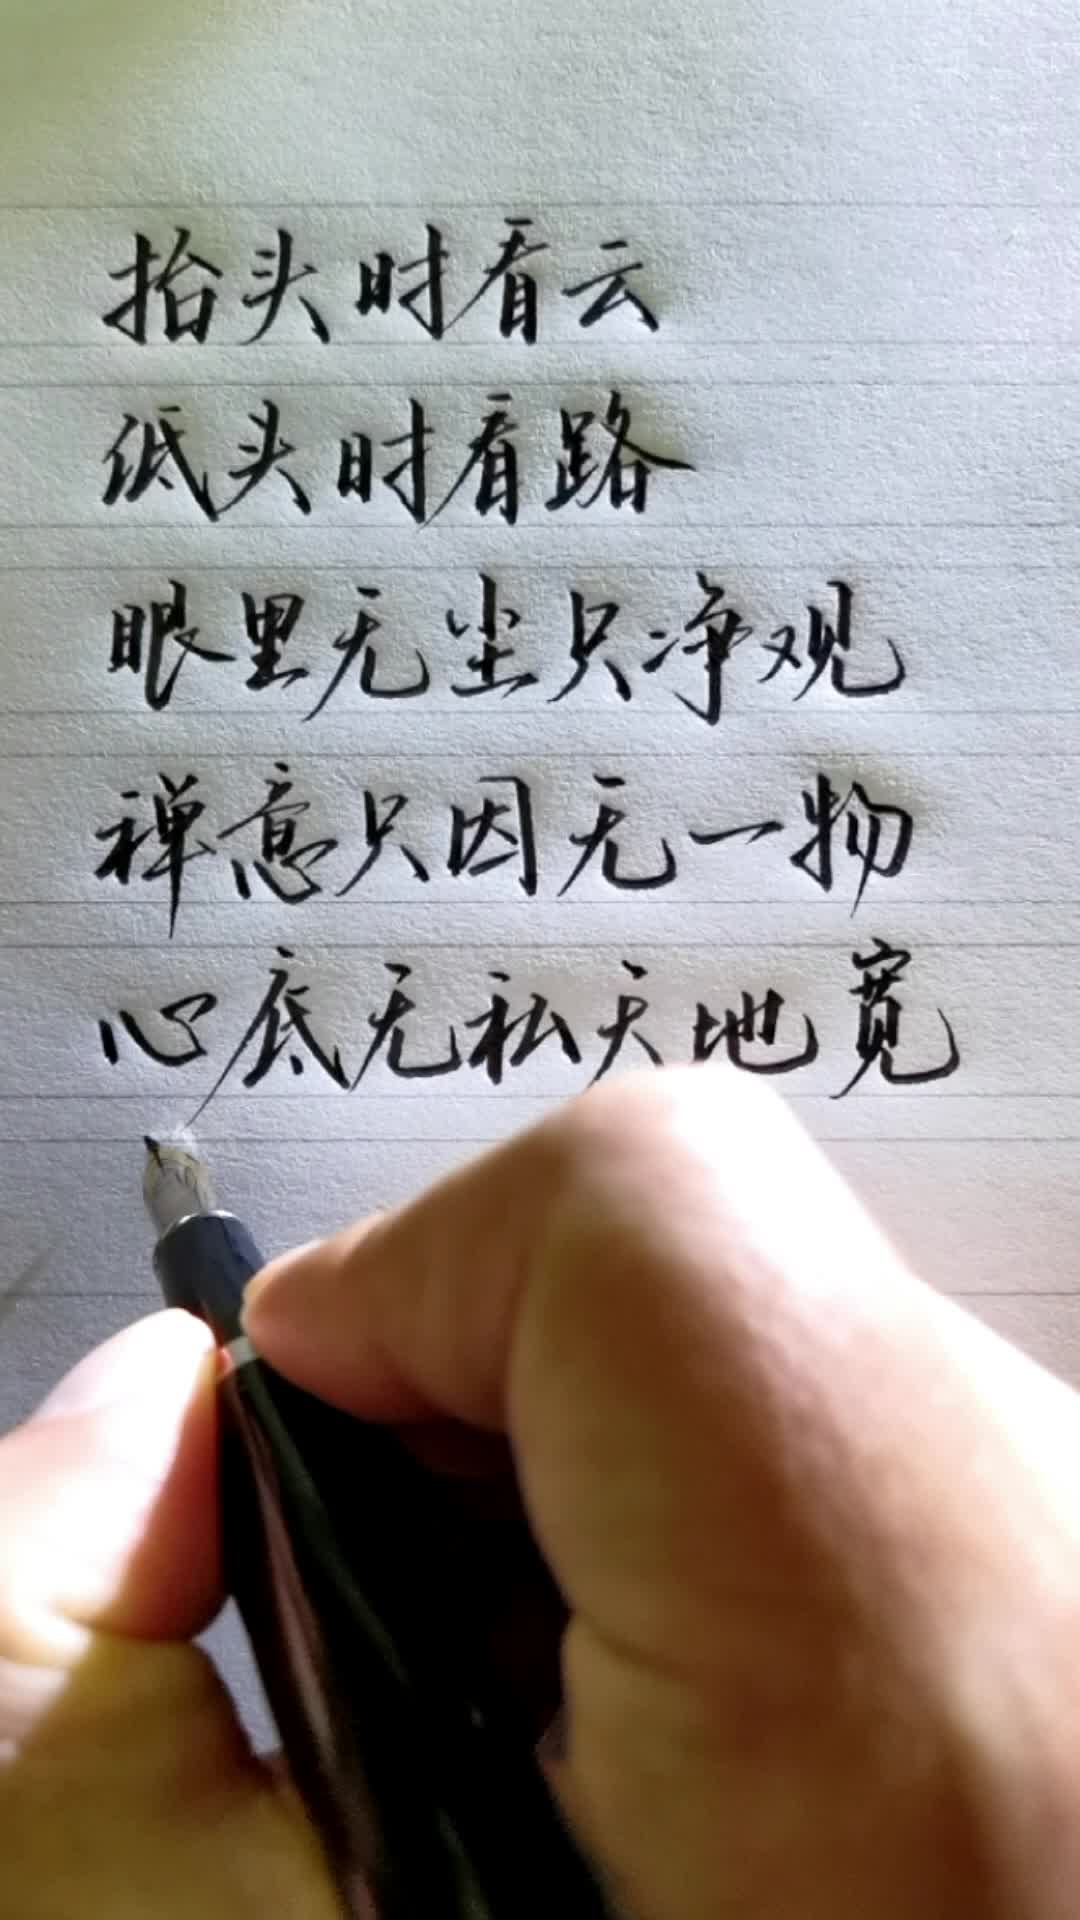 抬头时看云
低头时看路
眼里无尘只净观
禅意只因无一物
心底无私天地宽